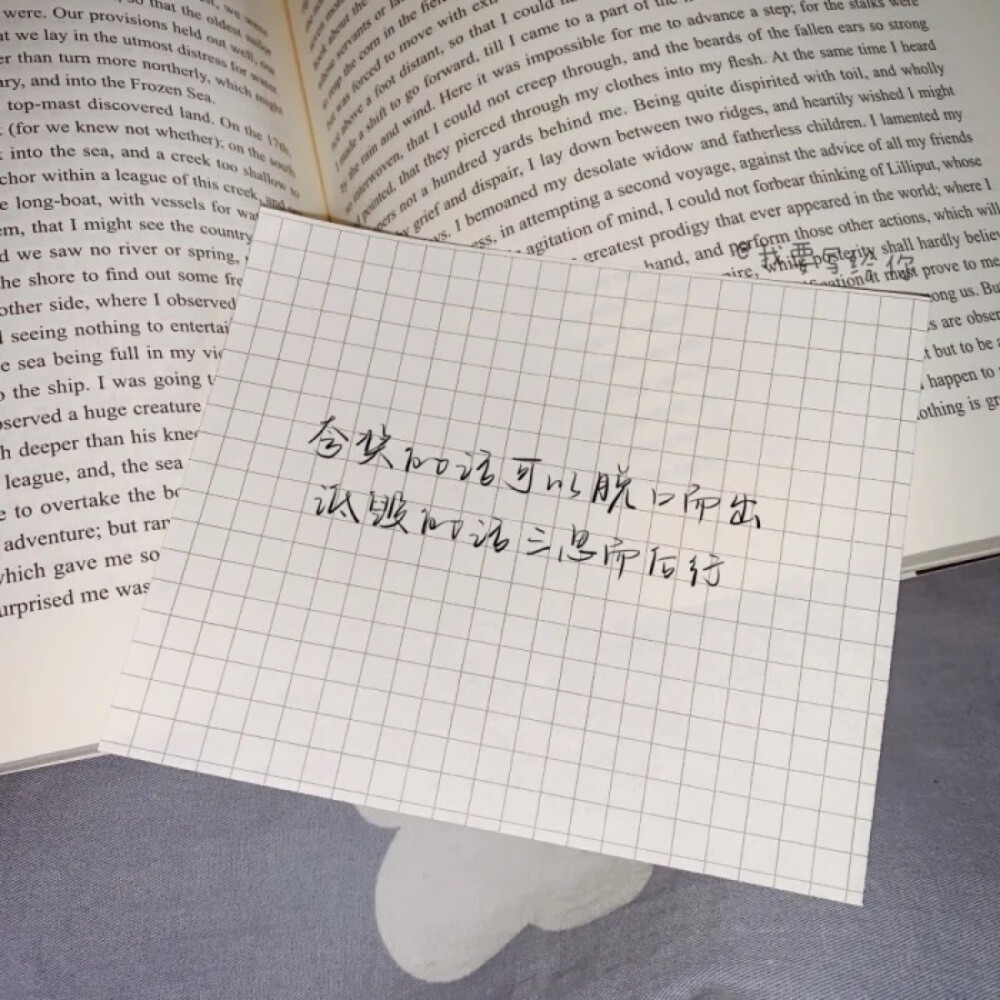 that the oldest
were. Our provisions held out well, our
at we lay in the utmost distress for water
than turn more northerly, which might
ary, and into the Frozen Sea.
top-mast discovered land. On the 17th
(for we knew not whether); on the south
into the sea, and a creek too shallow to
chor within a league of this creek, and
e long-boat, with vessels for wa
em, that I might see the country
d we saw no river or spring,
he shore to find out some fre
other side, where I observed
seeing nothing to entertai
e sea being full in my vi
the ship. I was going t
bserved a huge creature
h deeper than his knee
league, and, the sea
e to overtake the b
adventure; but ran
which gave me so
urprised me was
the corn in the fie
was forced to move with ext
above a foot distant, so that I could
made a shift to go forward, till I came to a part of
the rain and wind. Here it was impossible for me to advance a step; for the stalks were
interwoven, that I could not creep through, and the beards of the fallen ears so strong
pointed, that they pierced through my clothes into my flesh. At the same time I heard
pers not a hundred yards behind me. Being quite dispirited with toil, and wholly
grief and dispair, I lay down between two ridges, and heartily wished I might
ys. I bemoaned my desolate widow and fatherless children. I lamented my
ess, in attempting a second voyage, against the advice of all my friends
agitation of mind, I could not forbear thinking of Lilliput, whose
greatest prodigy that ever appeared in the world; where I
hand, and perform those other actions, which will
ire, while posterity shall hardly believ
ification it must prove to me
ong us. Bu
s are obser
t but to be a
happen to
othing is gr
我要写给你
夸奖的话可以脱口而出
诋毁的话三思而后行